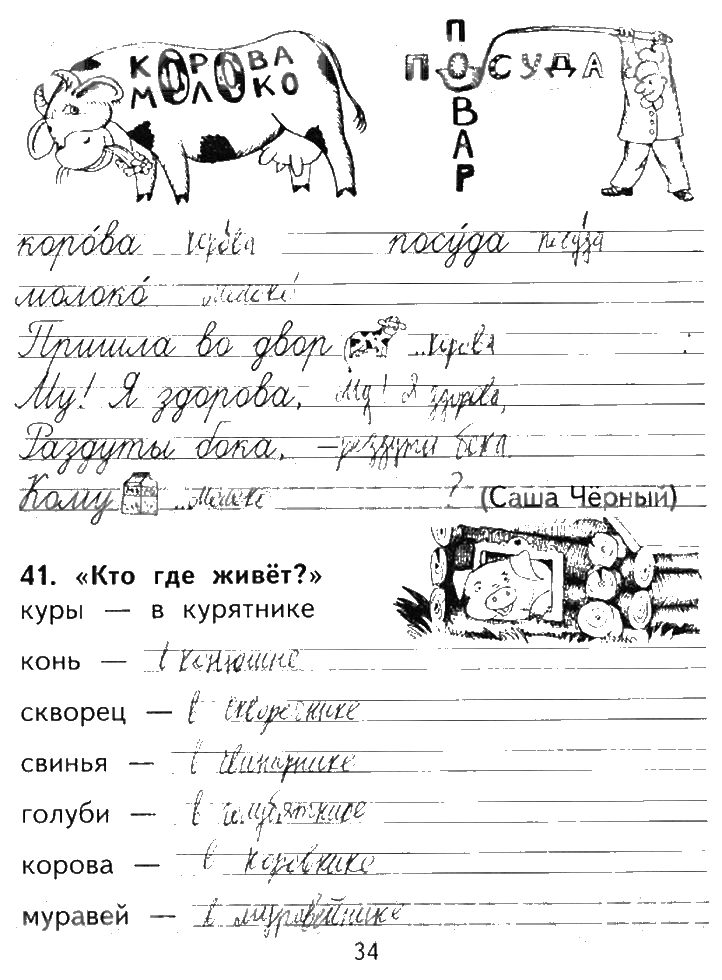 КОРОВА
МОЛОКО
ПОСУДА
ПОВАР
коро́ва корова посу́да посуда
молоко́ молоко
Пришла во двор ..корова
Му! Я здорова, Му! Я здорова,
Раздуты бока. –раздуты бока
Кому ..молоко ? (Саша Чёрный)
41. «Кто где живёт?»
куры — в курятнике
конь — в конюшне
скворец — в скворечнике
свинья — в свинарнике
голуби — в голубятнике
корова — в коровнике
муравей — в муравейнике
34